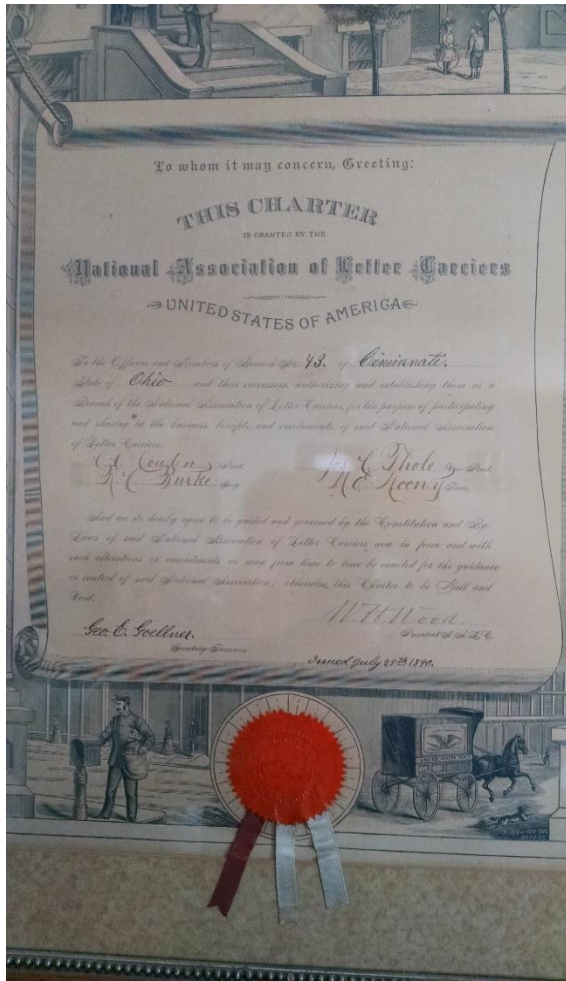 To whom it may concern, Greeting:
THIS CHARTER
IS GRANTED BY THE
National Association of Letter Carriers
OF THE
UNITED STATES OF AMERICA
To the Officers and Members of Branch No. 43. of Cincinnati.
State of Ohio and their successors, authorizing and establishing them as a
Branch of the National Association of Letter Carriers, for the purpose of participating
and sharing in the business, benefits, and emoluments of said National Association
of Letter Carriers.
Pres't Thole Vice Pres't
Burke Sec'y
And we do hereby agree to be guided and governed by the Constitution and By-
Laws of said National Association of Letter Carriers now in force and with
such alterations or amendments as may from time to time be enacted for the guidance
or control of said National Association; otherwise, this Charter to be Null and
Void.
W. H. Wood.
Geo. E. Goellner. President N. A. L. C.
Secretary-Treasurer.
Issued July 25th 1890.